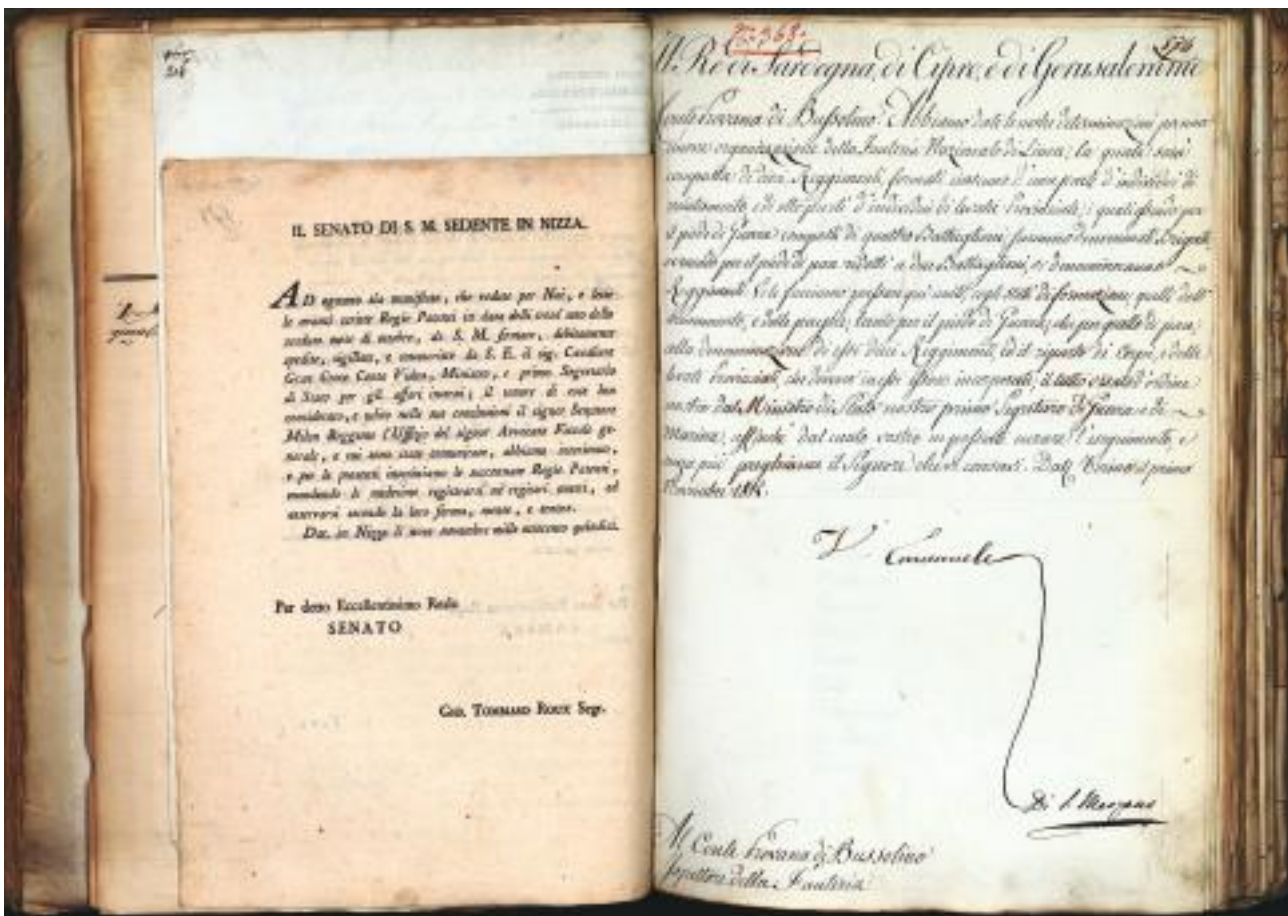 IL SENATO DI S. M. SEDENTE IN NIZZA.
AD ognuno sia manifesto, che vedute per Noi, e lette
le avanti scritte Regie Patenti in data delli
scaduto mese di ottobre, da S. M. firmate, debitamente
spedite, sigillate, e
Gran Croce Conte Vidua, Ministro, e primo Segretario
di Stato per gli affari interni; il tenore di esse ben
considerato, e udito nelle sue conclusioni il signor Senatore
Milon Reggente l'Uffizio del signor Avvocato Fiscale ge-
nerale, a cui sono state comunicate, abbiamo interinato,
e per le presenti interiniamo le succennate Regie Patenti,
mandando le medesime registrarsi ne' registri nostri, ed
osservarsi secondo la loro forma, mente, e tenore.
Dat. in Nizza li nove novembre mille ottocento quindici.
Per detto Eccellentissimo Reale
SENATO
TOMMASO ROUX Segr.
Il Re di Sardegna, di Cipro, e di Gerusalemme
Conte Provana di Bussolino. Abbiamo date le nostre determinazioni per una
nuova organizzazione della Fanteria Nazionale di Linea; la quale sarà
composta di dieci Reggimenti, formati ciascuno d'una parte d'individui di
e di otto parti d'individui di levata Provinciale; i quali essendo per
il piede di Guerra composti di quattro Battaglioni, saranno denominati Brigate,
e per il piede di pace ridotti a due Battaglioni, si denomineranno
Reggimenti. Ve le facciamo passare qui unite, cogli stati di formazione, quelli dell'
e delle paghe, tanto per il piede di Guerra, che per quello di pace;
alla denominazione di essi dieci Reggimenti, ed il riparto di Corpi, e delle
levate Provinciali, che devono in essi essere incorporati, il tutto d'ordine
nostro dal Ministro di Stato nostro primo Segretaro di Guerra e di
Marina, affinchè dal canto vostro ne possiate curare l'eseguimento, e
senza più preghiamo il Signore che vi conservi. Dat. Torino il primo
Novembre 1815.
V. Emanuele
Di S. Marzano
Al Conte Provana di Bussolino
Ispettore della Fanteria